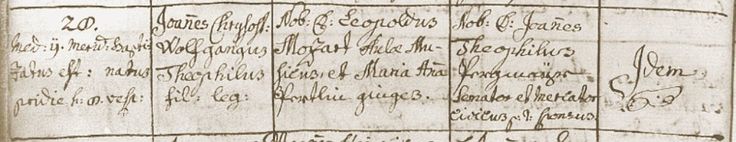 28.
Med: 11. merid: Bapti
zatus est: natus
pridie h: 8. vesp:
Joañes Chrysost:
Wolfgangus
Theophilus
fil: leg:
Nob: D: Leopoldus
Mozart Aulæ Mu-
sicus, et Maria Aña
Pertlin giuges.
Nob: D: Joañes
Theophilus
Pergmayr
Senator et Mercator
civicus p: t: sponsus
Idem